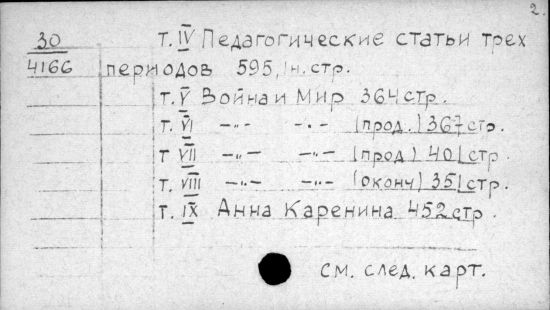 2.
30 т. IV Педагогические статьи трех
4166 периодов 595, 1н. стр.
т. V Война и Мир 364 стр.
т. VI —"— —"— (прод.) 367 стр.
т VII —"— —"— (прод) 401 стр.
т. VIII —"— —"— (оконч) 351 стр.
т. IX Анна Каренина 452 стр.
см. след. карт.